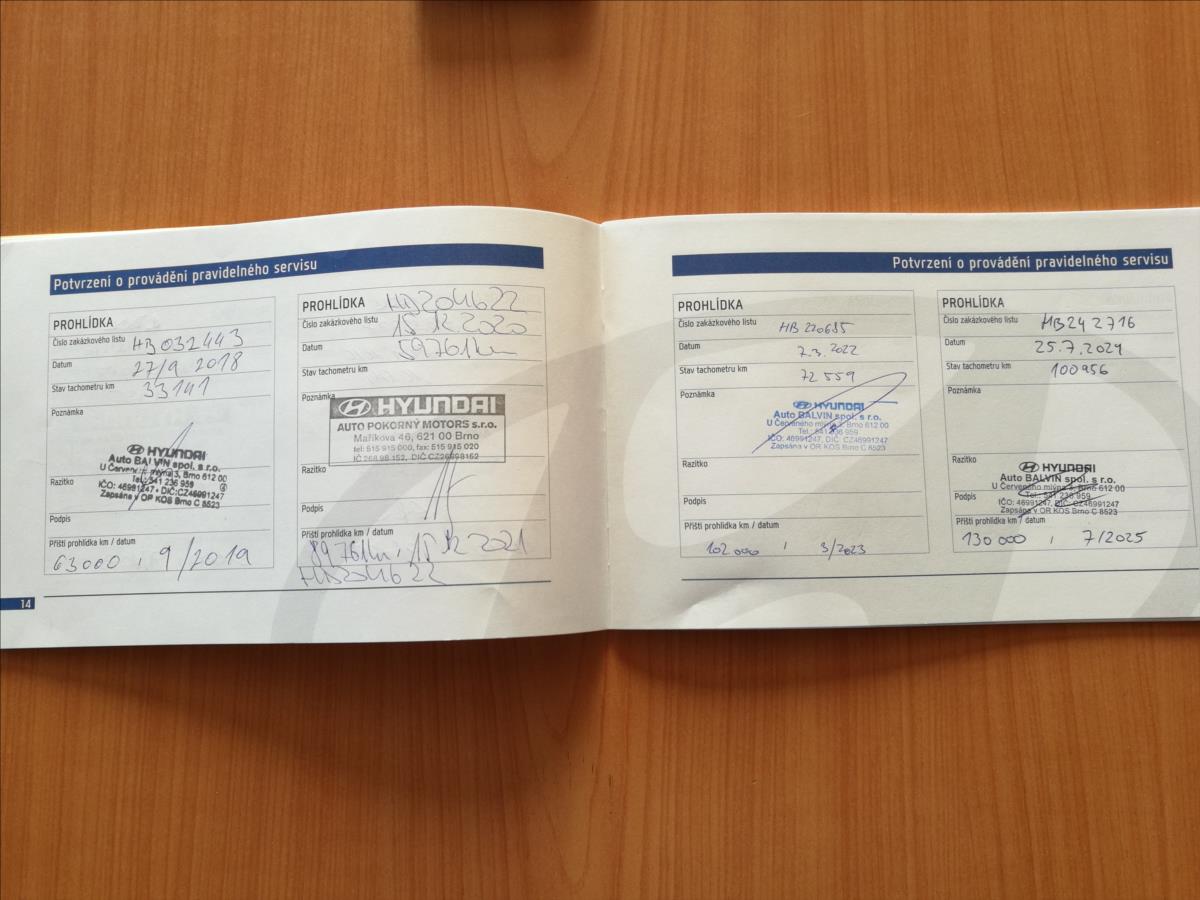 Potvrzení o provádění pravidelného servisu
PROHLÍDKA
Číslo zakázkového listu HB032443
Datum 27/9 2018
Stav tachometru km 33141
Poznámka
HYUNDAI
Auto BALVIN spol. s.r.o.
U Červeného mlýna 3, Brno 612 00
Tel.: 541 236 959
Razítko
IČO: 46991247 • DIČ:CZ46991247
Zapsána v OR KOS Brno C 8523
Podpis
Příští prohlídka km / datum
63000 , 9/2019
14
PROHLÍDKA HB204622
Číslo zakázkového listu 15 12 2020
Datum 59761km
Stav tachometru km
Poznámka
HYUNDAI
AUTO POKORNÝ MOTORS s.r.o.
Maříkova 46, 621 00 Brno
tel: 515 915 000, fax: 515 915 020
IČ 268 98 152, DIČ CZ26898152
Razítko
Podpis
Příští prohlídka km / datum
89761km, 15 12 2021
HB204622
Potvrzení o provádění pravidelného servisu
PROHLÍDKA
Číslo zakázkového listu HB220685
Datum 7.3. 2022
Stav tachometru km 72 559
Poznámka
HYUNDAI
Auto BALVIN spol. s r.o.
U Červeného mlýna 3, Brno 612 00
Tel.: 541 236 959
IČO: 46991247, DIČ: CZ46991247
Zapsána v OR KOS Brno C 8523
Razítko
Podpis
Příští prohlídka km / datum
102 000 , 3/2023
PROHLÍDKA
Číslo zakázkového listu HB24 2716
Datum 25.7.2024
Stav tachometru km 100956
Poznámka
Razítko
HYUNDAI
Auto BALVIN spol. s r.o.
U Červeného mlýna 3, Brno 612 00
Podpis
Tel.: 541 236 959
IČO: 46991247, DIČ: CZ46991247
Zapsána v OR KOS Brno C 8523
Příští prohlídka km / datum
130 000 , 7/2025